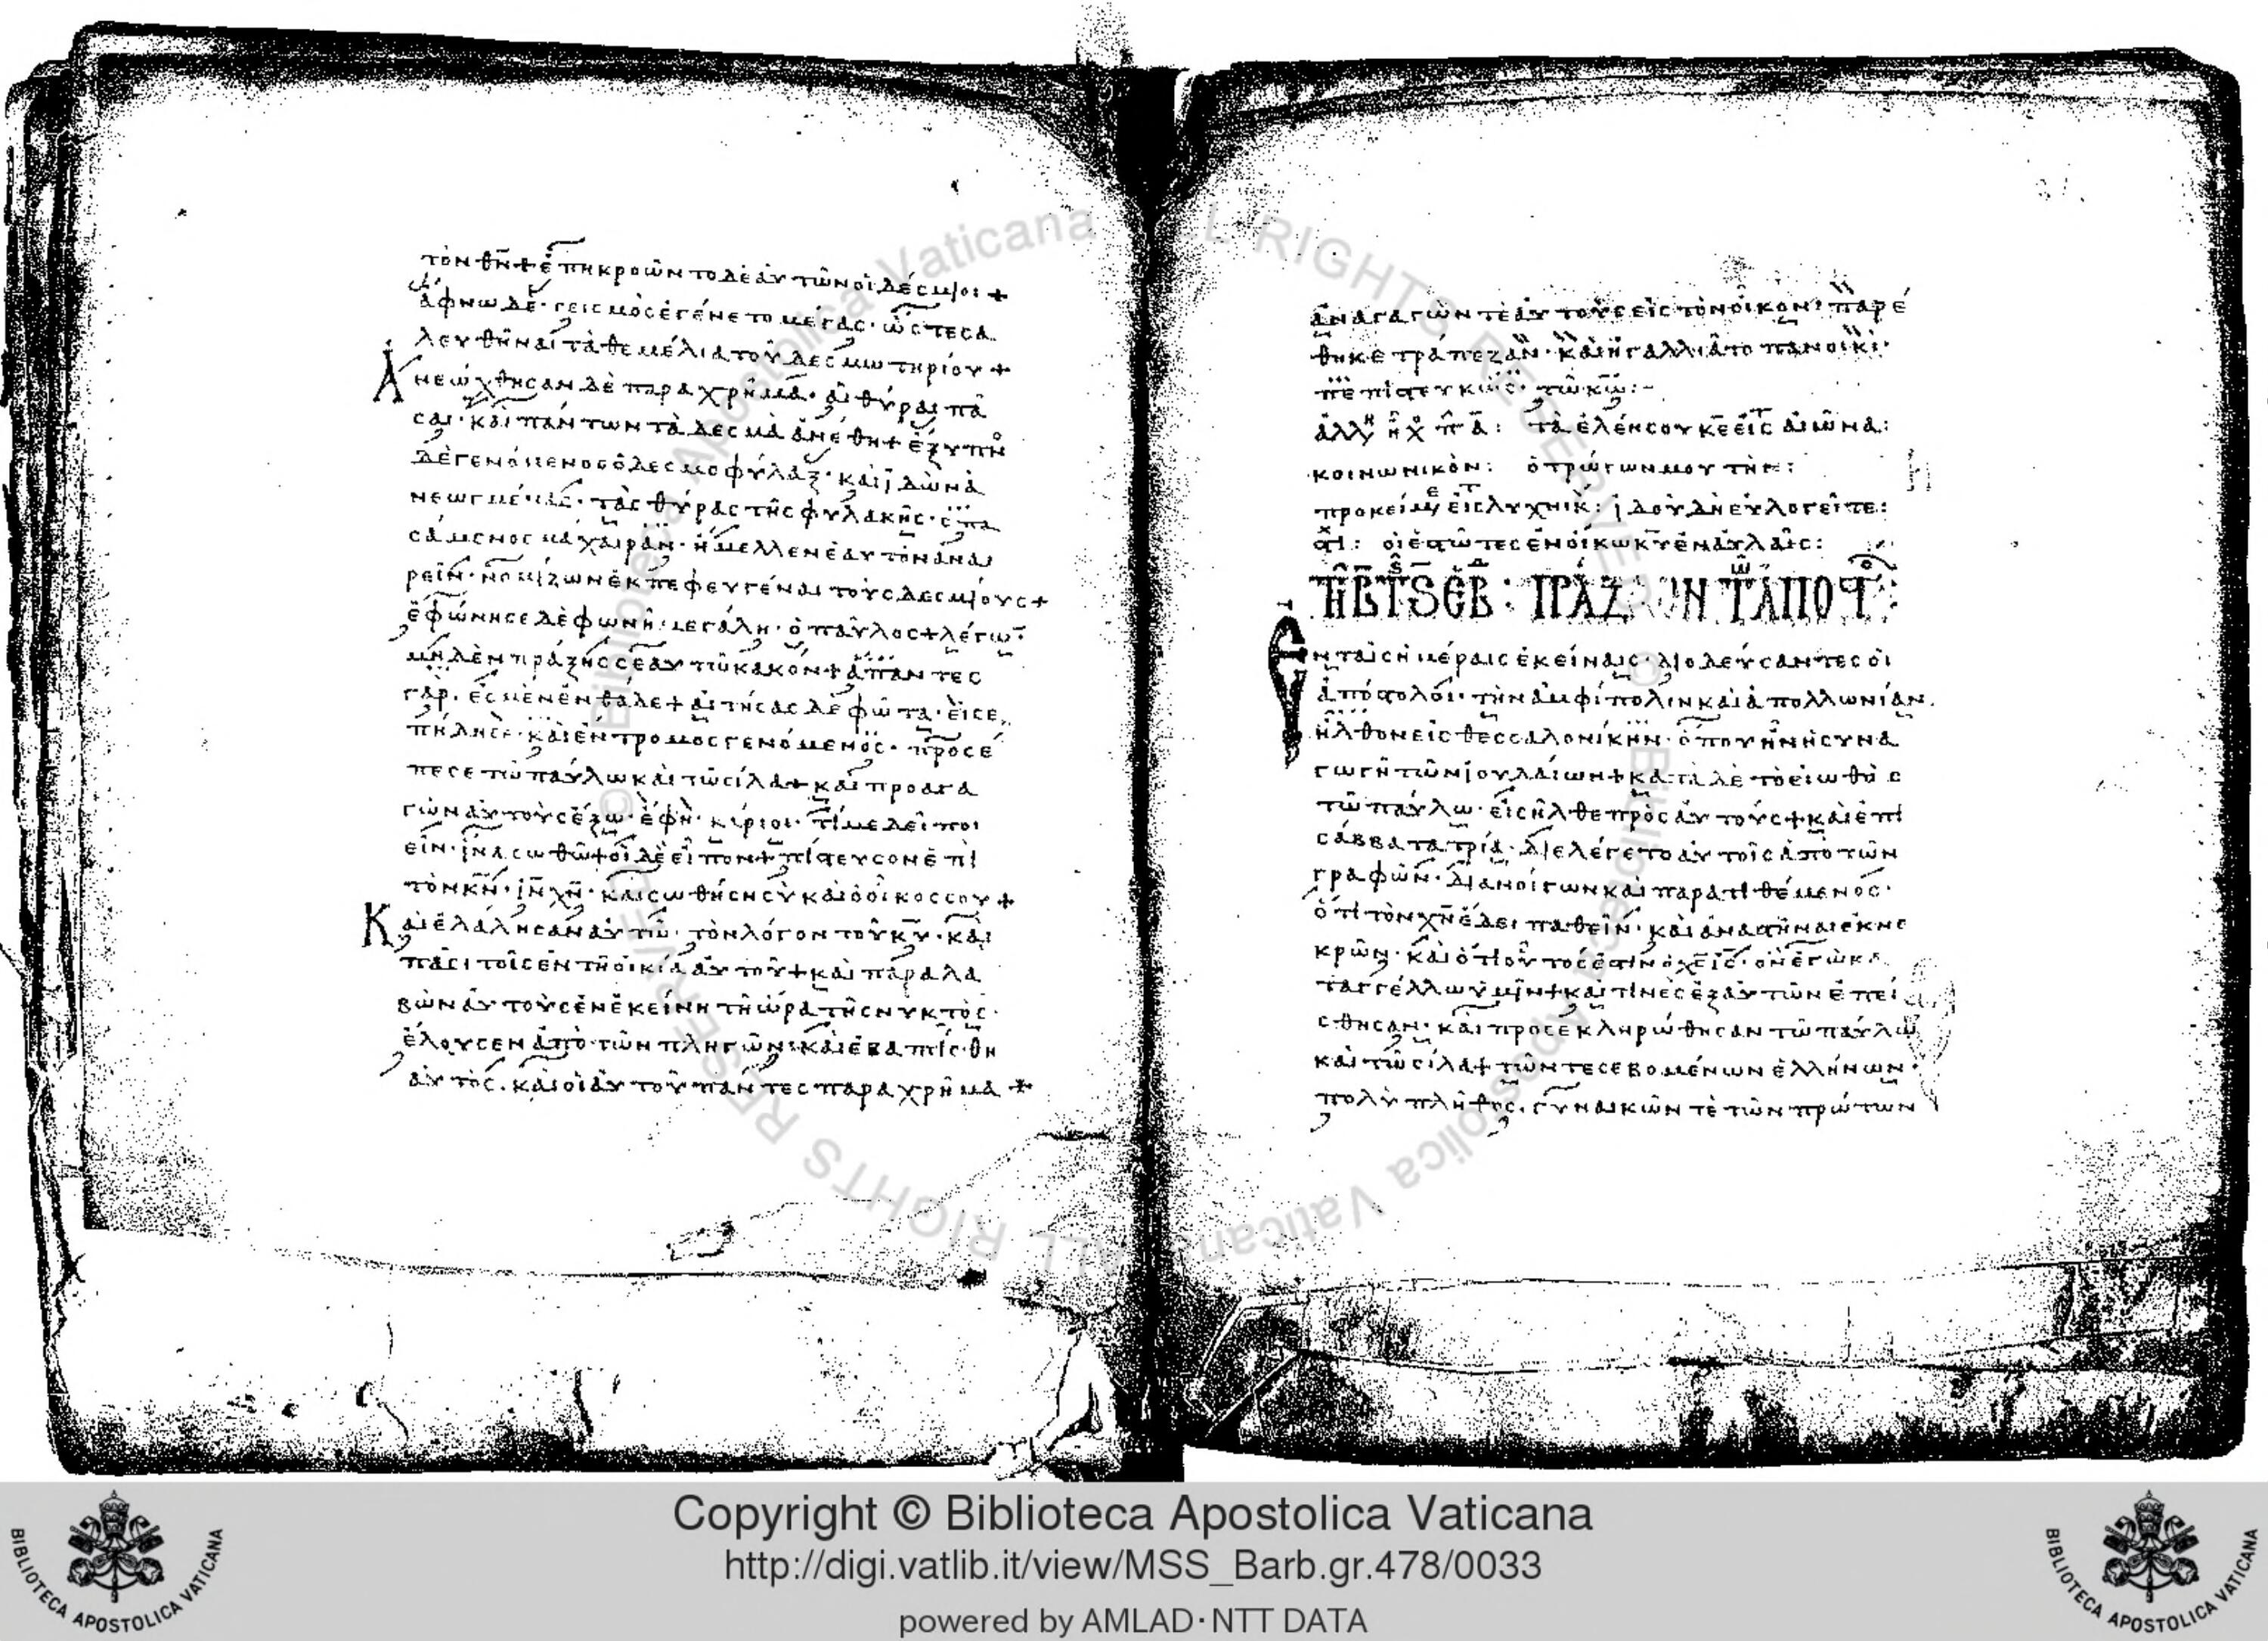 τὸν θν+ ἐπηκροῶντο δὲ αὐτῶν οἱ δέσμιοι+
ἄφνω δὲ· σεισμὸς ἐγένετο μέγας· ὥστε σα
λευθῆναι τὰ θεμέλια τοῦ δεσμωτηρίου+
Ἀνεώχθησαν δὲ παραχρῆμα· αἱ θύραι πᾶ
σαι· καὶ πάντων τὰ δεσμὰ ἀνέθη+ ἔξυπν
δὲ γενόμενος ὁ δεσμοφύλαξ· καὶ ἰδὼν ἀ
νεωγμένας· τὰς θύρας τῆς φυλακῆς· σπα
σάμενος μάχαιραν· ἤμελλεν ἑαυτὸν ἀναι
ρεῖν· νομίζων ἐκπεφευγέναι τοὺς δεσμίους+
ἐφώνησε δὲ φωνῆ μεγάλη· ὁ παῦλος+ λέγω
μηδὲν πράξης σεαυτῶ κακόν+ ἅπαντες
γάρ· ἐσμὲν ἐνθάδε+ αἰτήσας δὲ φῶτα· εἰσε
πήδησε· καὶ ἔντρομος γενόμενος· προσέ
πεσε τῶ παύλω καὶ τῶ σίλα+ καὶ προαγα
γὼν αὐτοὺς ἔξω· ἔφη· κύριοι· τί με δεῖ ποι
εῖν· ἵνα σωθῶ+ οἱ δὲ εἶπον+ πίστευσον ἐπὶ
τὸν κν· ιν χν· καὶ σωθήση σὺ καὶ ὁ οἶκος σου+
Καὶ ἐλάλησαν αὐτῶ· τὸν λόγον τοῦ κυ· καὶ
πᾶσι τοῖς ἐν τῆ οἰκία αὐτοῦ+ καὶ παραλα
βὼν αὐτοὺς ἐν ἐκείνη τῆ ὥρα τῆς νυκτὸς·
ἔλουσεν ἀπὸ τῶν πληγῶν· καὶ ἐβαπτίσθη
αὐτὸς· καὶ οἱ αὐτοῦ πάντες παραχρῆμα+
ἀναγαγών τε αὐτοὺς εἰς τὸν οἶκον· παρέ
θηκε τράπεζαν· καὶ ἠγαλλιᾶτο πανοικὶ·
πεπιστευκὼς· τῶ κω:
τὰ ἐλέη σου κε εἰς αἰῶνα:
κοινωνικὸν: ὁ τρώγων μου τὴν:
προκείμ εἰς λυχνικ: ἰδοὺ δὴ εὐλογεῖτε:
στι: οἱ ἑστῶτες ἐν οἴκω κυ ἐν αὐλαῖς:
Ἐν ταῖς ἡμέραις ἐκείναις· διοδεύσαντες οἱ
ἀπόστολοι· τὴν ἀμφίπολιν καὶ ἀπολλωνίαν·
ἦλθον εἰς θεσσαλονίκην· ὅπου ἦν ἡ συνα
γωγὴ τῶν ἰουδαίων+ κατὰ δὲ τὸ εἰωθὸς
τῶ παύλω· εἰσῆλθε πρὸς αὐτούς+ καὶ ἐπὶ
σάββατα τρία· διελέγετο αὐτοῖς ἀπὸ τῶν
γραφῶν· διανοίγων καὶ παρατιθέμενος·
ὅτι τὸν χν ἔδει παθεῖν· καὶ ἀναστῆναι ἐκ νε
κρῶν· καὶ ὅτι οὗτός ἐστιν ὁ χς ις· ὃν ἐγὼ κα
ταγγέλλω ὑμῖν+ καί τινες ἐξ αὐτῶν ἐπεί
σθησαν· καὶ προσεκληρώθησαν τῶ παύλω
καὶ τῶ σίλα+ τῶν τε σεβομένων ἑλλήνων·
πολὺ πλῆθος· γυναικῶν τὲ τῶν πρώτων
Copyright © Biblioteca Apostolica Vaticana
http://digi.vatlib.it/view/MSS_Barb.gr.478/0033
powered by AMLAD·NTT DATA
BIBLIOTECA APOSTOLICA VATICANA
BIBLIOTECA APOSTOLICA VATICANA